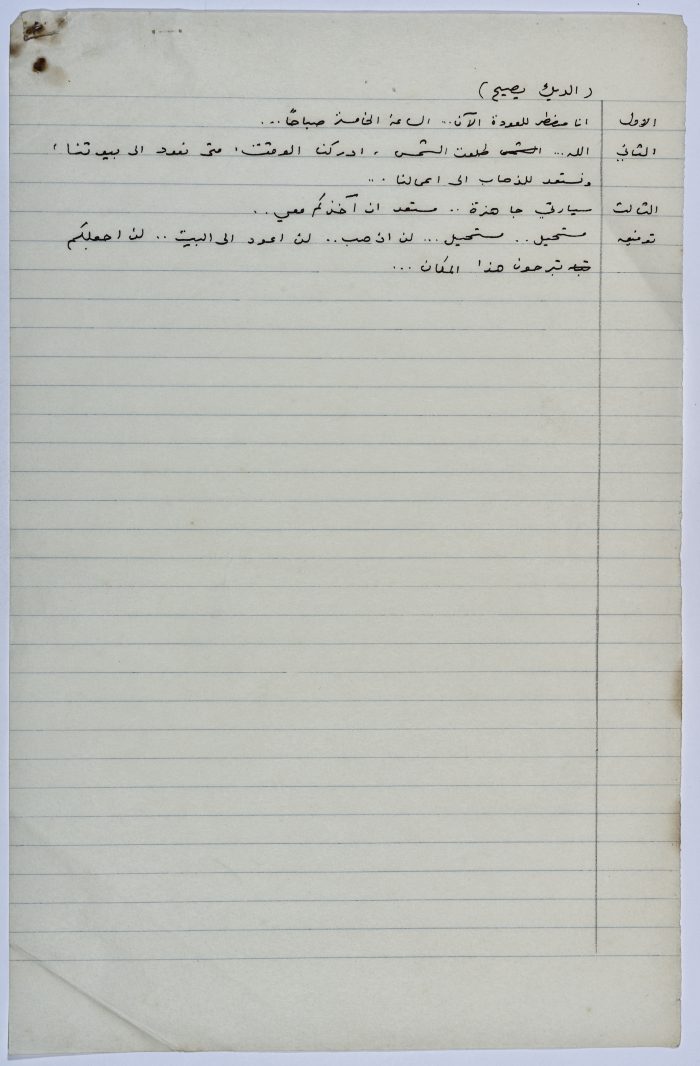 ( الديك يصيح )
الاول انا مضطر للعودة الآن... الساعة الخامسة صباحًا...
الثاني الله... الشمس طلعت الشمس، ادركنا الوقت، متى نعود الى بيوتنا،
ونستعد للذهاب الى اعمالنا...
الثالث سيارتي جاهزة .. مستعد ان آخذكم معي..
توفيق مستحيل .. مستحيل... لن اذهب.. لن اعود الى البيت .. لن اجعلكم
تبرحون هذا المكان ...